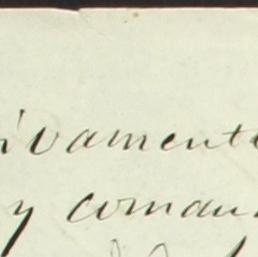 ivamente
y coman